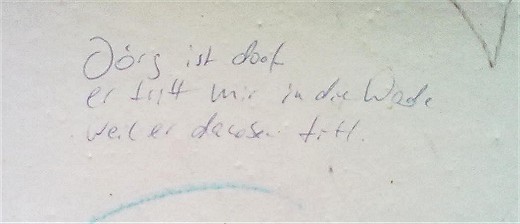 Jörg ist doof
er tritt mir in die Wade
weil er